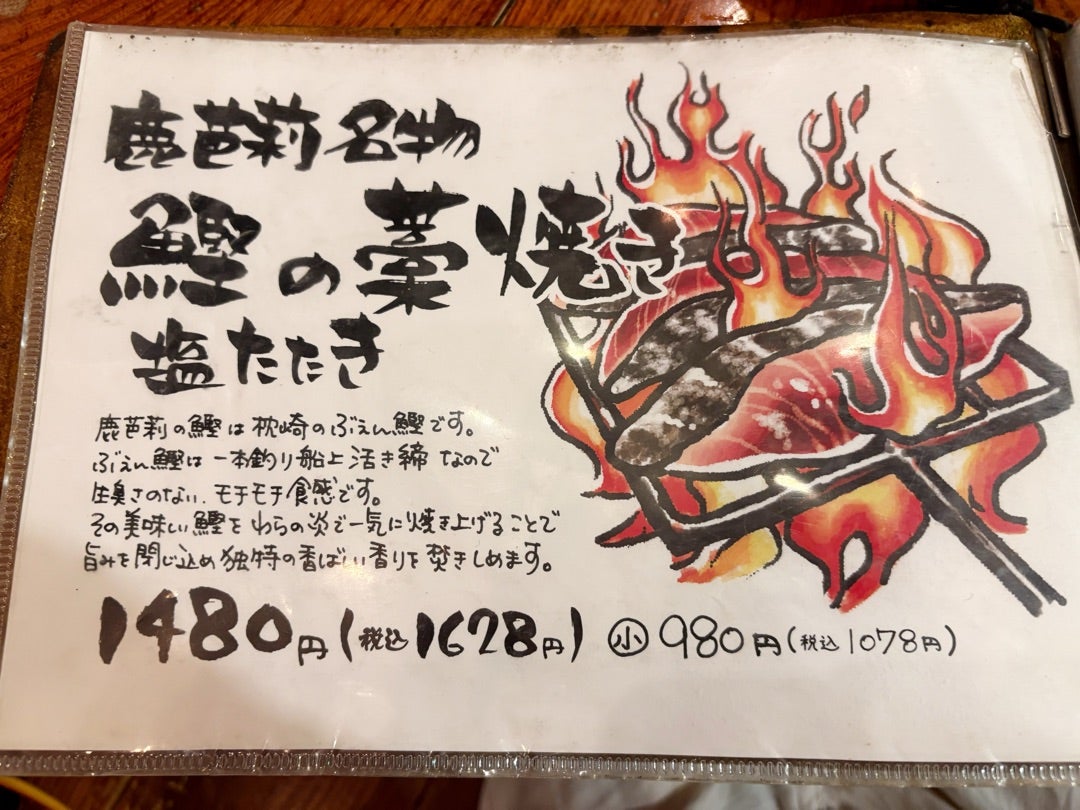 鹿芭莉名物
鰹の藁焼き
塩たたき
鹿芭莉の鰹は枕崎のぶえん鰹です。
ぶえん鰹は一本釣り船上活き締なので
生臭さのない、モチモチ食感です。
その美味しい鰹をわらの炎で一気に焼き上げることで
旨みを閉じ込め独特の香ばしい香りを焚きしめます。
1480円(税込1628円) ㊙小 980円(税込1078円)